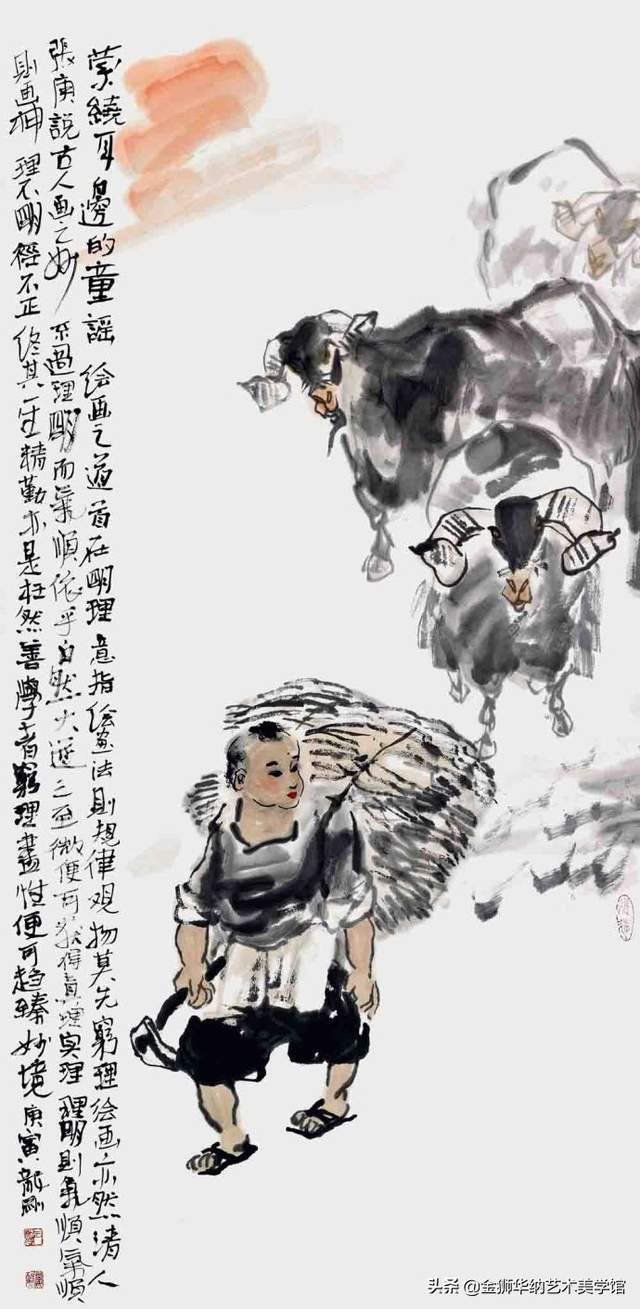 萦繞耳邊的童謡 绘画之道首在明理 意指绘畫法则规律观物莫先窮理绘画亦然清人
張庚說古人画之妙 不過理明而氣順依乎自然大近三至微便可获得真理实理 理明则氣順氣順
则画神 理不明 徑不正 终其一生精勤亦是枉然善學者窮理盡性便可趋臻妙境 庚寅龍剛
头条 @金狮华纳艺术美学馆